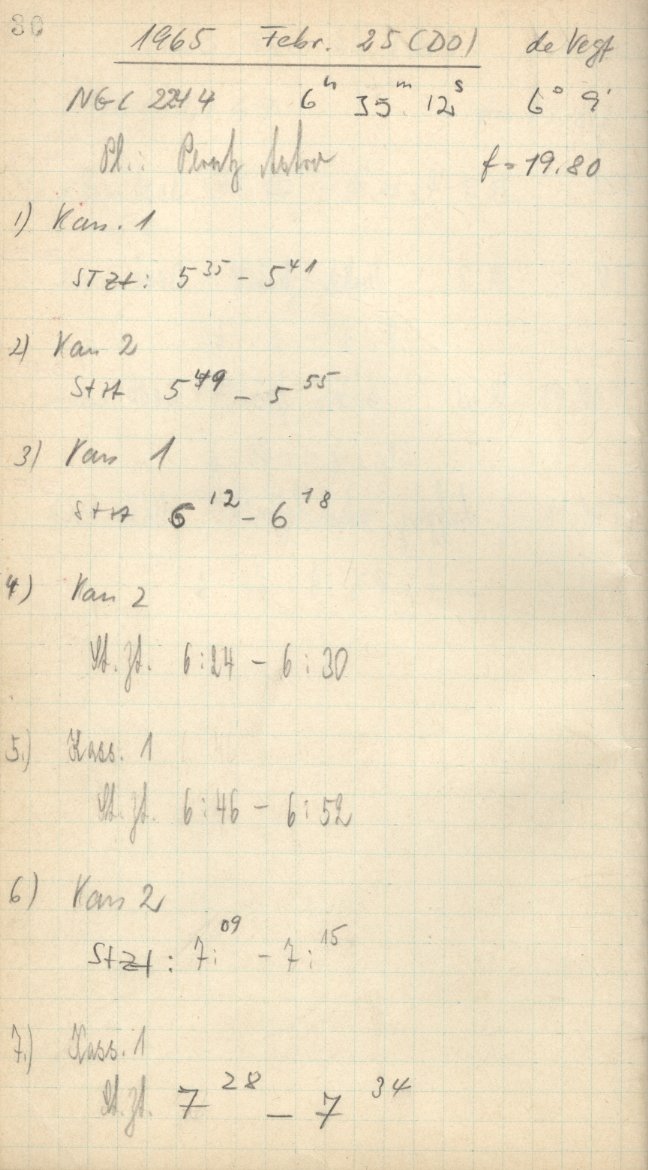 30
1965 Febr. 25 (DO) de Vegt
NGC 2244 6ʰ 35ᵐ 12ˢ 6° 9'
Pl.: Perutz Astro f = 19.80
1) Kass. 1
STZt: 5³⁵ - 5⁴¹
2) Kass 2
StZt 5⁴⁹ - 5⁵⁵
3) Kass 1
StZt 6¹² - 6¹⁸
4) Kass 2
St. Zt. 6:24 - 6:30
5.) Kass. 1
St. Zt. 6:46 - 6:52
6) Kass 2
StZt: 7:⁰⁹ - 7:¹⁵
7.) Kass. 1
St. Zt. 7²⁸ - 7³⁴